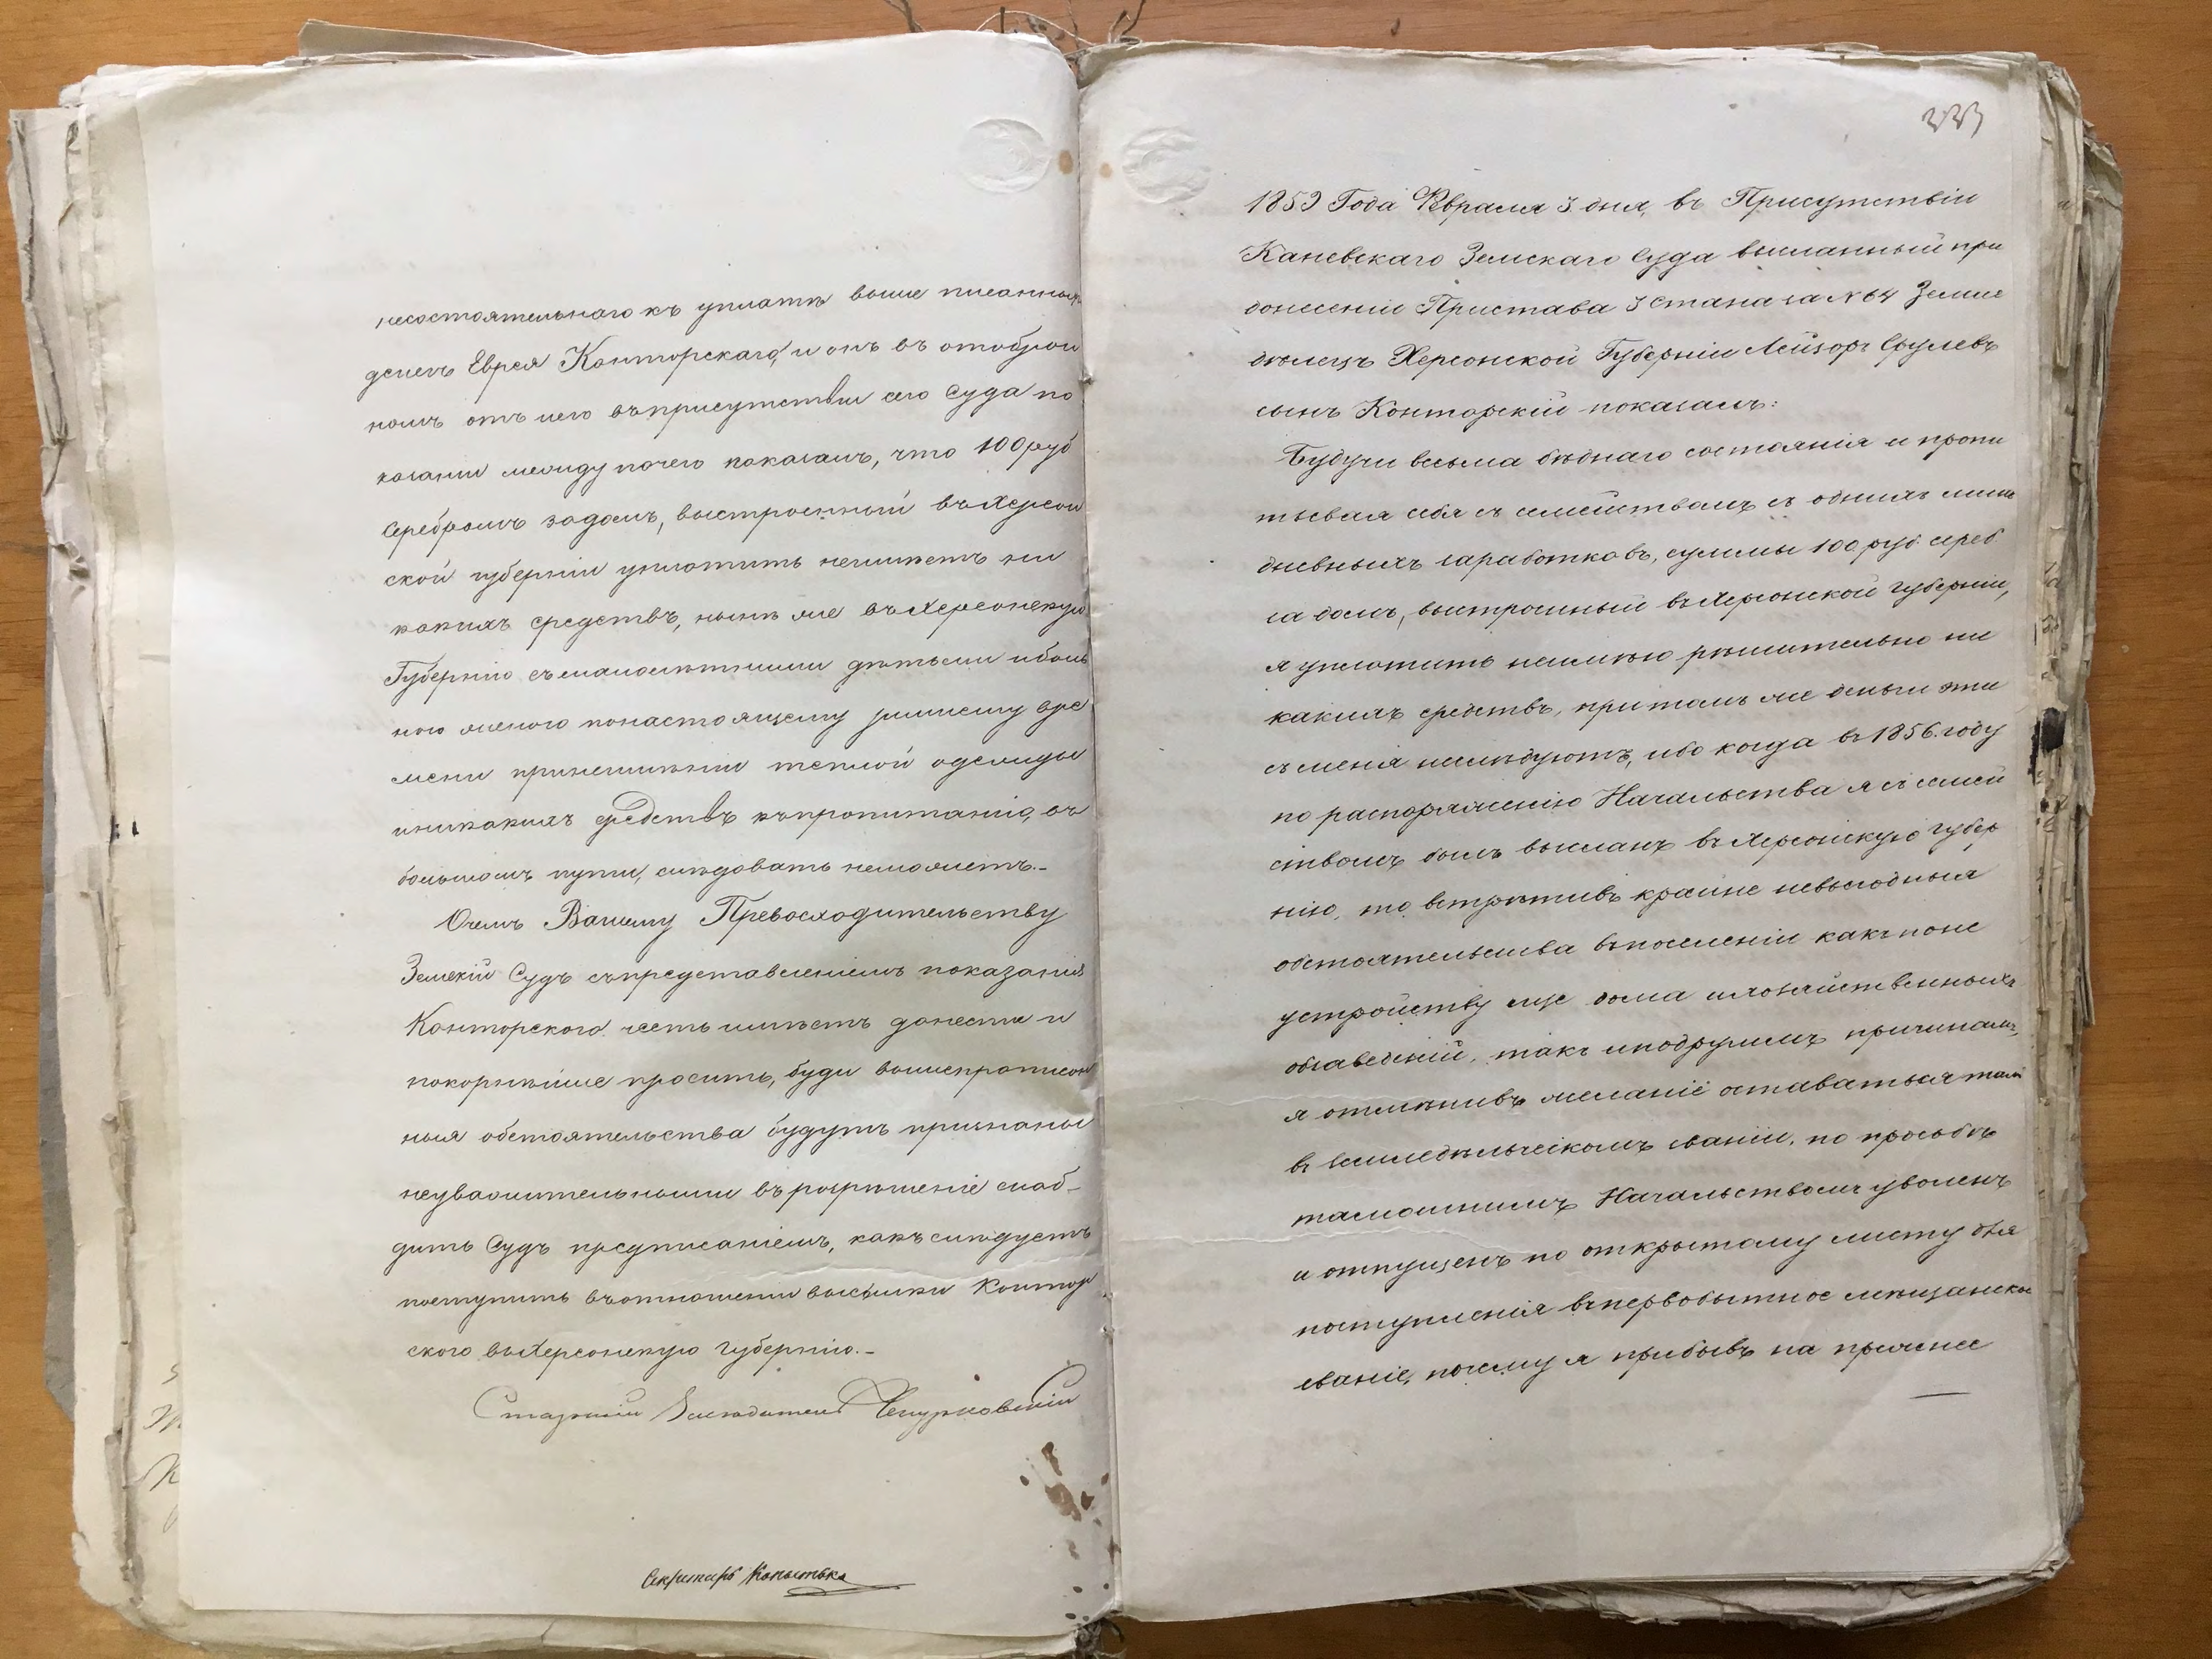 несостоятельнаго къ уплатѣ выше писанныхъ
денегъ Еврея Конторскаго, и онъ въ отобран
номъ отъ него въ присутствіи сего Суда по
казаніи между прочего показалъ, что 100 руб
серебромъ за домъ, выстроенный въ Херсон
ской губерніи уплотить неимѣетъ ни
какихъ средствъ, нынѣ же въ Херсонскую
Губернію съ малолѣтними дѣтьми и боль
ною женою по настоящему зимнему вре
мени при неимѣніи теплой одежды
и никакихъ средствъ къ пропитанію, въ
большомъ пути, слѣдовать неможетъ.-
О чемъ Вашему Превосходительству
Земскій Судъ съ представленіемъ показанія
Конторского честь имѣетъ донести и
покорнѣйше просить, буди вышепрописан
ныя обстоятельства будутъ признаны
неуважительными въ розрѣшеніе снаб-
дить Судъ предписаніемъ, какъ слѣдуетъ
поступить въ отношеніи высылки Контор
ского въ Херсонскую губернію.-
Старшій Засѣдатель
Секретарь
333
1859 Года Февраля 3 дня, въ Присутствіи
Каневскаго Земскаго Суда высланный при
донесеніи Пристава 3 Стана за № 64 Земле
дѣлецъ Херсонской Губерніи Лейзоръ Срулевъ
сынъ Конторскій показалъ:
Будучи весьма бѣднаго состоянія и пропи
тывая себя съ семействомъ съ однихъ лишь
дневныхъ заработковъ, суммы 100 руб. сереб.
за домъ, выстроенный въ Херсонской губерніи,
я уплотить неимѣю рѣшительно ни
какихъ средствъ, при томъ же деньги эти
съ меня неслѣдуютъ, ибо когда въ 1856. году
по распоряженію Начальства я съ семей
ствомъ былъ высланъ въ Херсонскую губер
нію, то встрѣтивъ крайне невыгодныя
обстоятельства въ поселеніи какъ по не
устройству еще дома и хозяйственныхъ
обзаведеній, такъ и по другимъ причинамъ,
я отмѣнивъ желаніе оставаться тамъ
въ земледѣльческомъ званіи, по просьбѣ
тамошнимъ Начальствомъ уволенъ
и отпущенъ по открытому листу для
поступленія въ первобытное мѣщанское
званіе, почему я прибывъ на прежнее